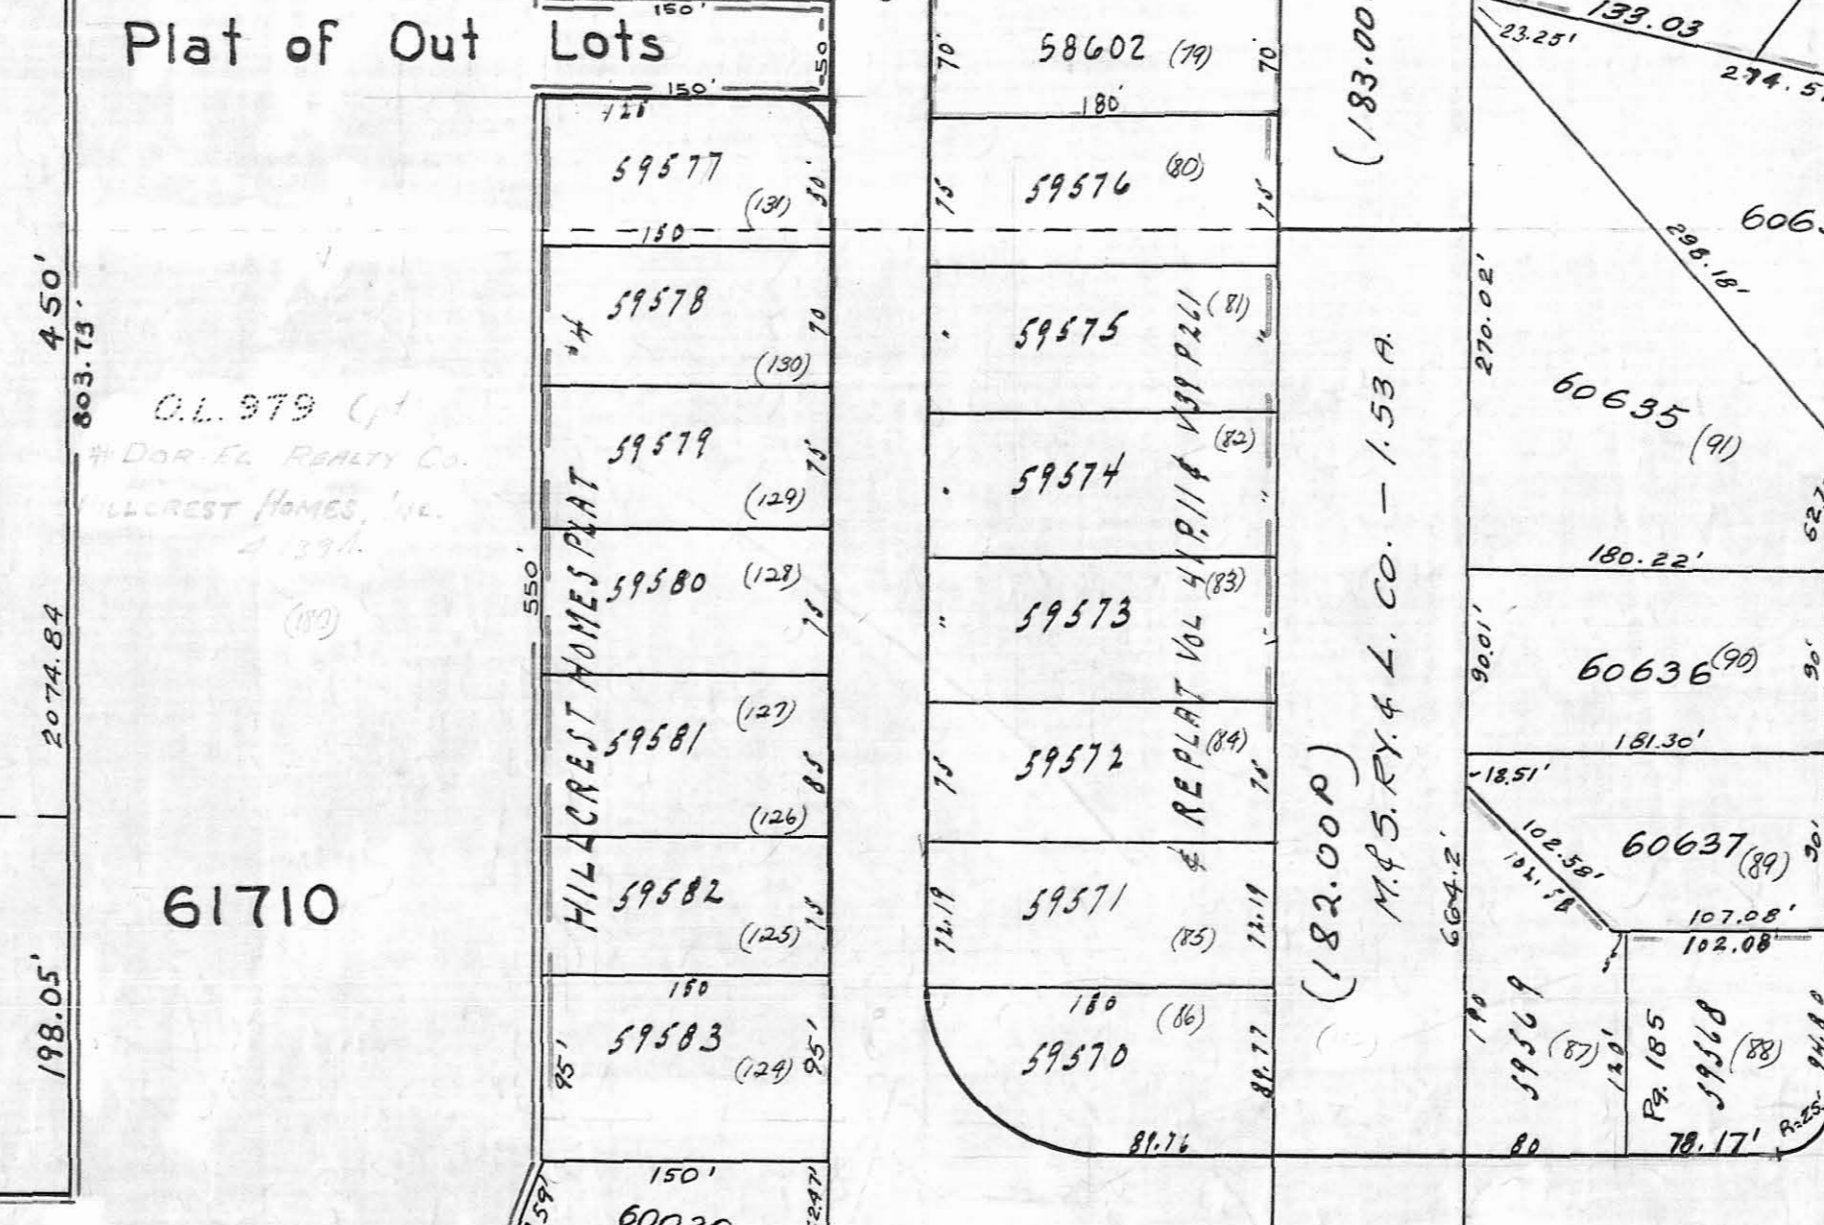 Plat of Out Lots
150'
50
150'
125
59577
(131)
50
150
59578
(130)
70
#4
59579
(129)
75
59580
(128)
75
59581
(127)
85
(126)
59582
(125)
75
150
59583
(124)
95'
95'
150'
550'
HILLCREST HOMES PLAT
450'
803.73'
2074.84
198.05'
O.L. 979 (pt)
# DOR-EL REALTY CO.
HILLCREST HOMES, INC.
(180)
61710
70'
58602 (79)
70'
180'
59576
(80)
75
75
59575
(81)
"
59574
(82)
"
59573
(83)
"
59572
(84)
75
75
59571
(85)
72.19
72.19
180
(86)
59570
89.77
89.76
& REPLAT VOL 41 P. 11 & V39 P261
(183.00
(182.00R)
M. & S. RY. & L. CO. — 1.53 A.
133.03
23.25'
274.5
298.18'
606
270.02'
60635 (91)
180.22'
90.01'
60636 (90)
90'
181.30'
18.51'
102.58'
101.58
60637 (89)
90'
107.08'
102.08'
664.2'
190
59569
(87)
120'
Pg. 185
59568
(88)
R=25'
80
78.17'